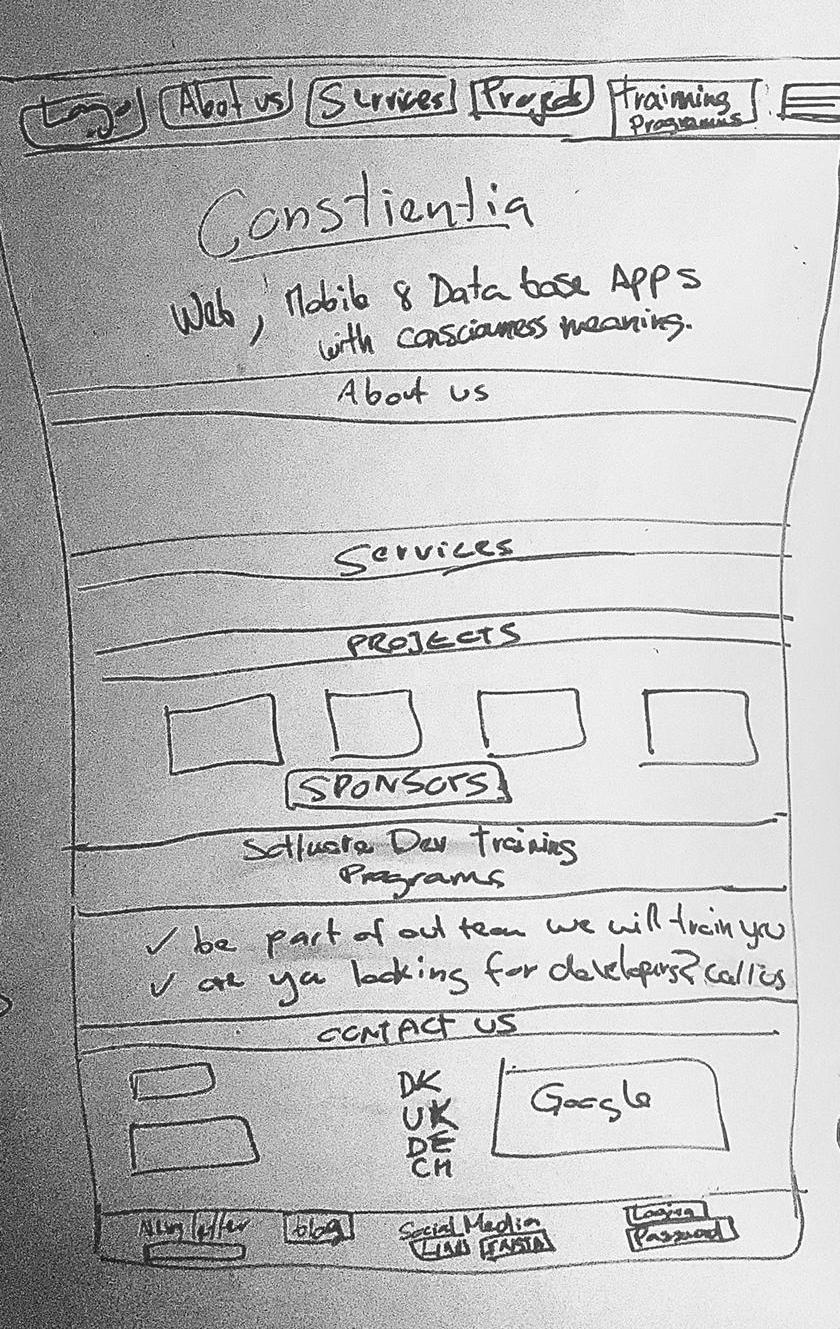 Logo About us Services Projects Training
Programms
Constientia
Web, Mobile & Data base APPS
with consciouness meaning.
About us
Services
PROJECTS
SPONSORS
Software Dev Training
Programs
✓ be part of out team we will train you
✓ are you looking for developers? call us
CONTACT US
DK
UK
DE
CH
Google
Newsletter blog Social Media
LINK INSTA
Loging
Password